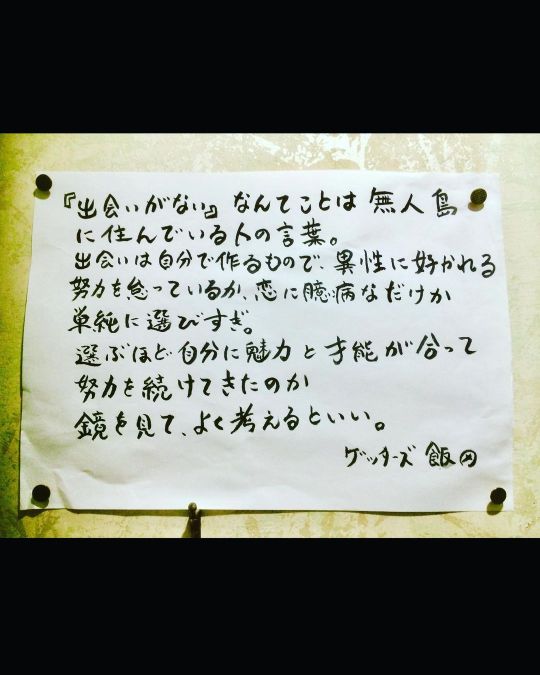 『出会いがない』なんてことは無人島
に住んでいる人の言葉。
出会いは自分で作るもので、異性に好かれる
努力を怠っているか、恋に臆病なだけか
単純に選びすぎ。
選ぶほど自分に魅力と才能が合って
努力を続けてきたのか
鏡を見て、よく考えるといい。
ゲッターズ 飯田